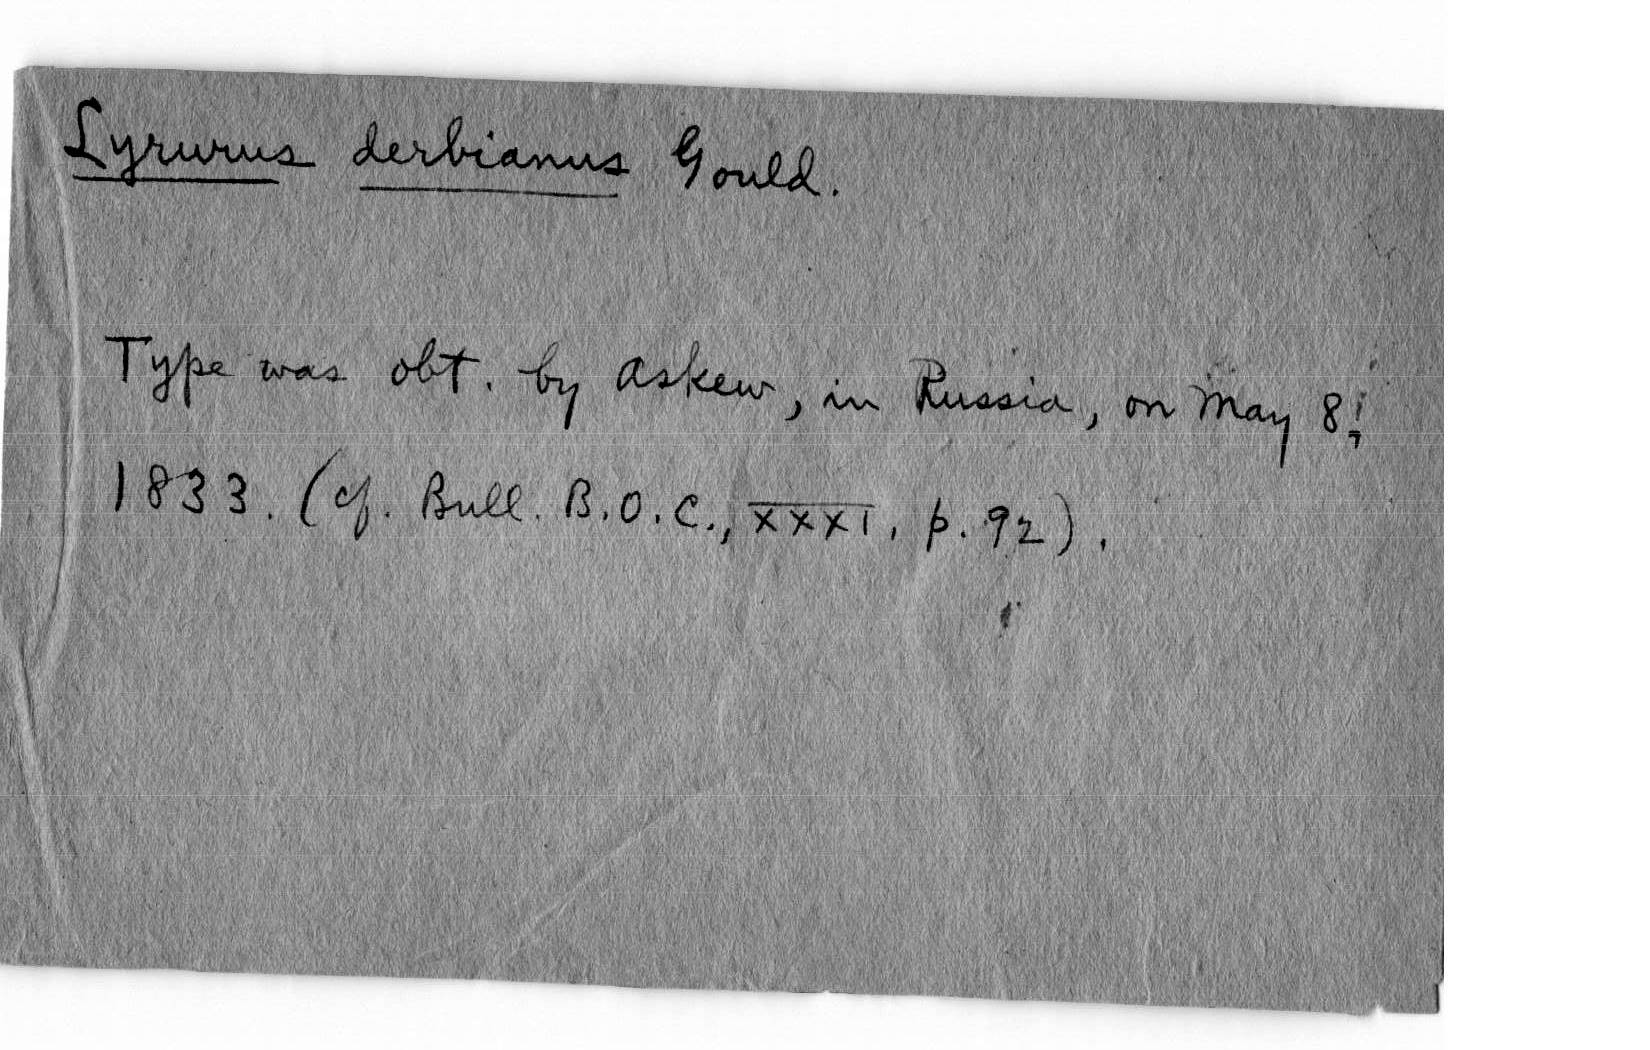 Lyrurus derbianus Gould.
Type was obt. by Askew, in Russia, on May 8,
1833. (cf. Bull. B.O.C., XXXI, p. 92).